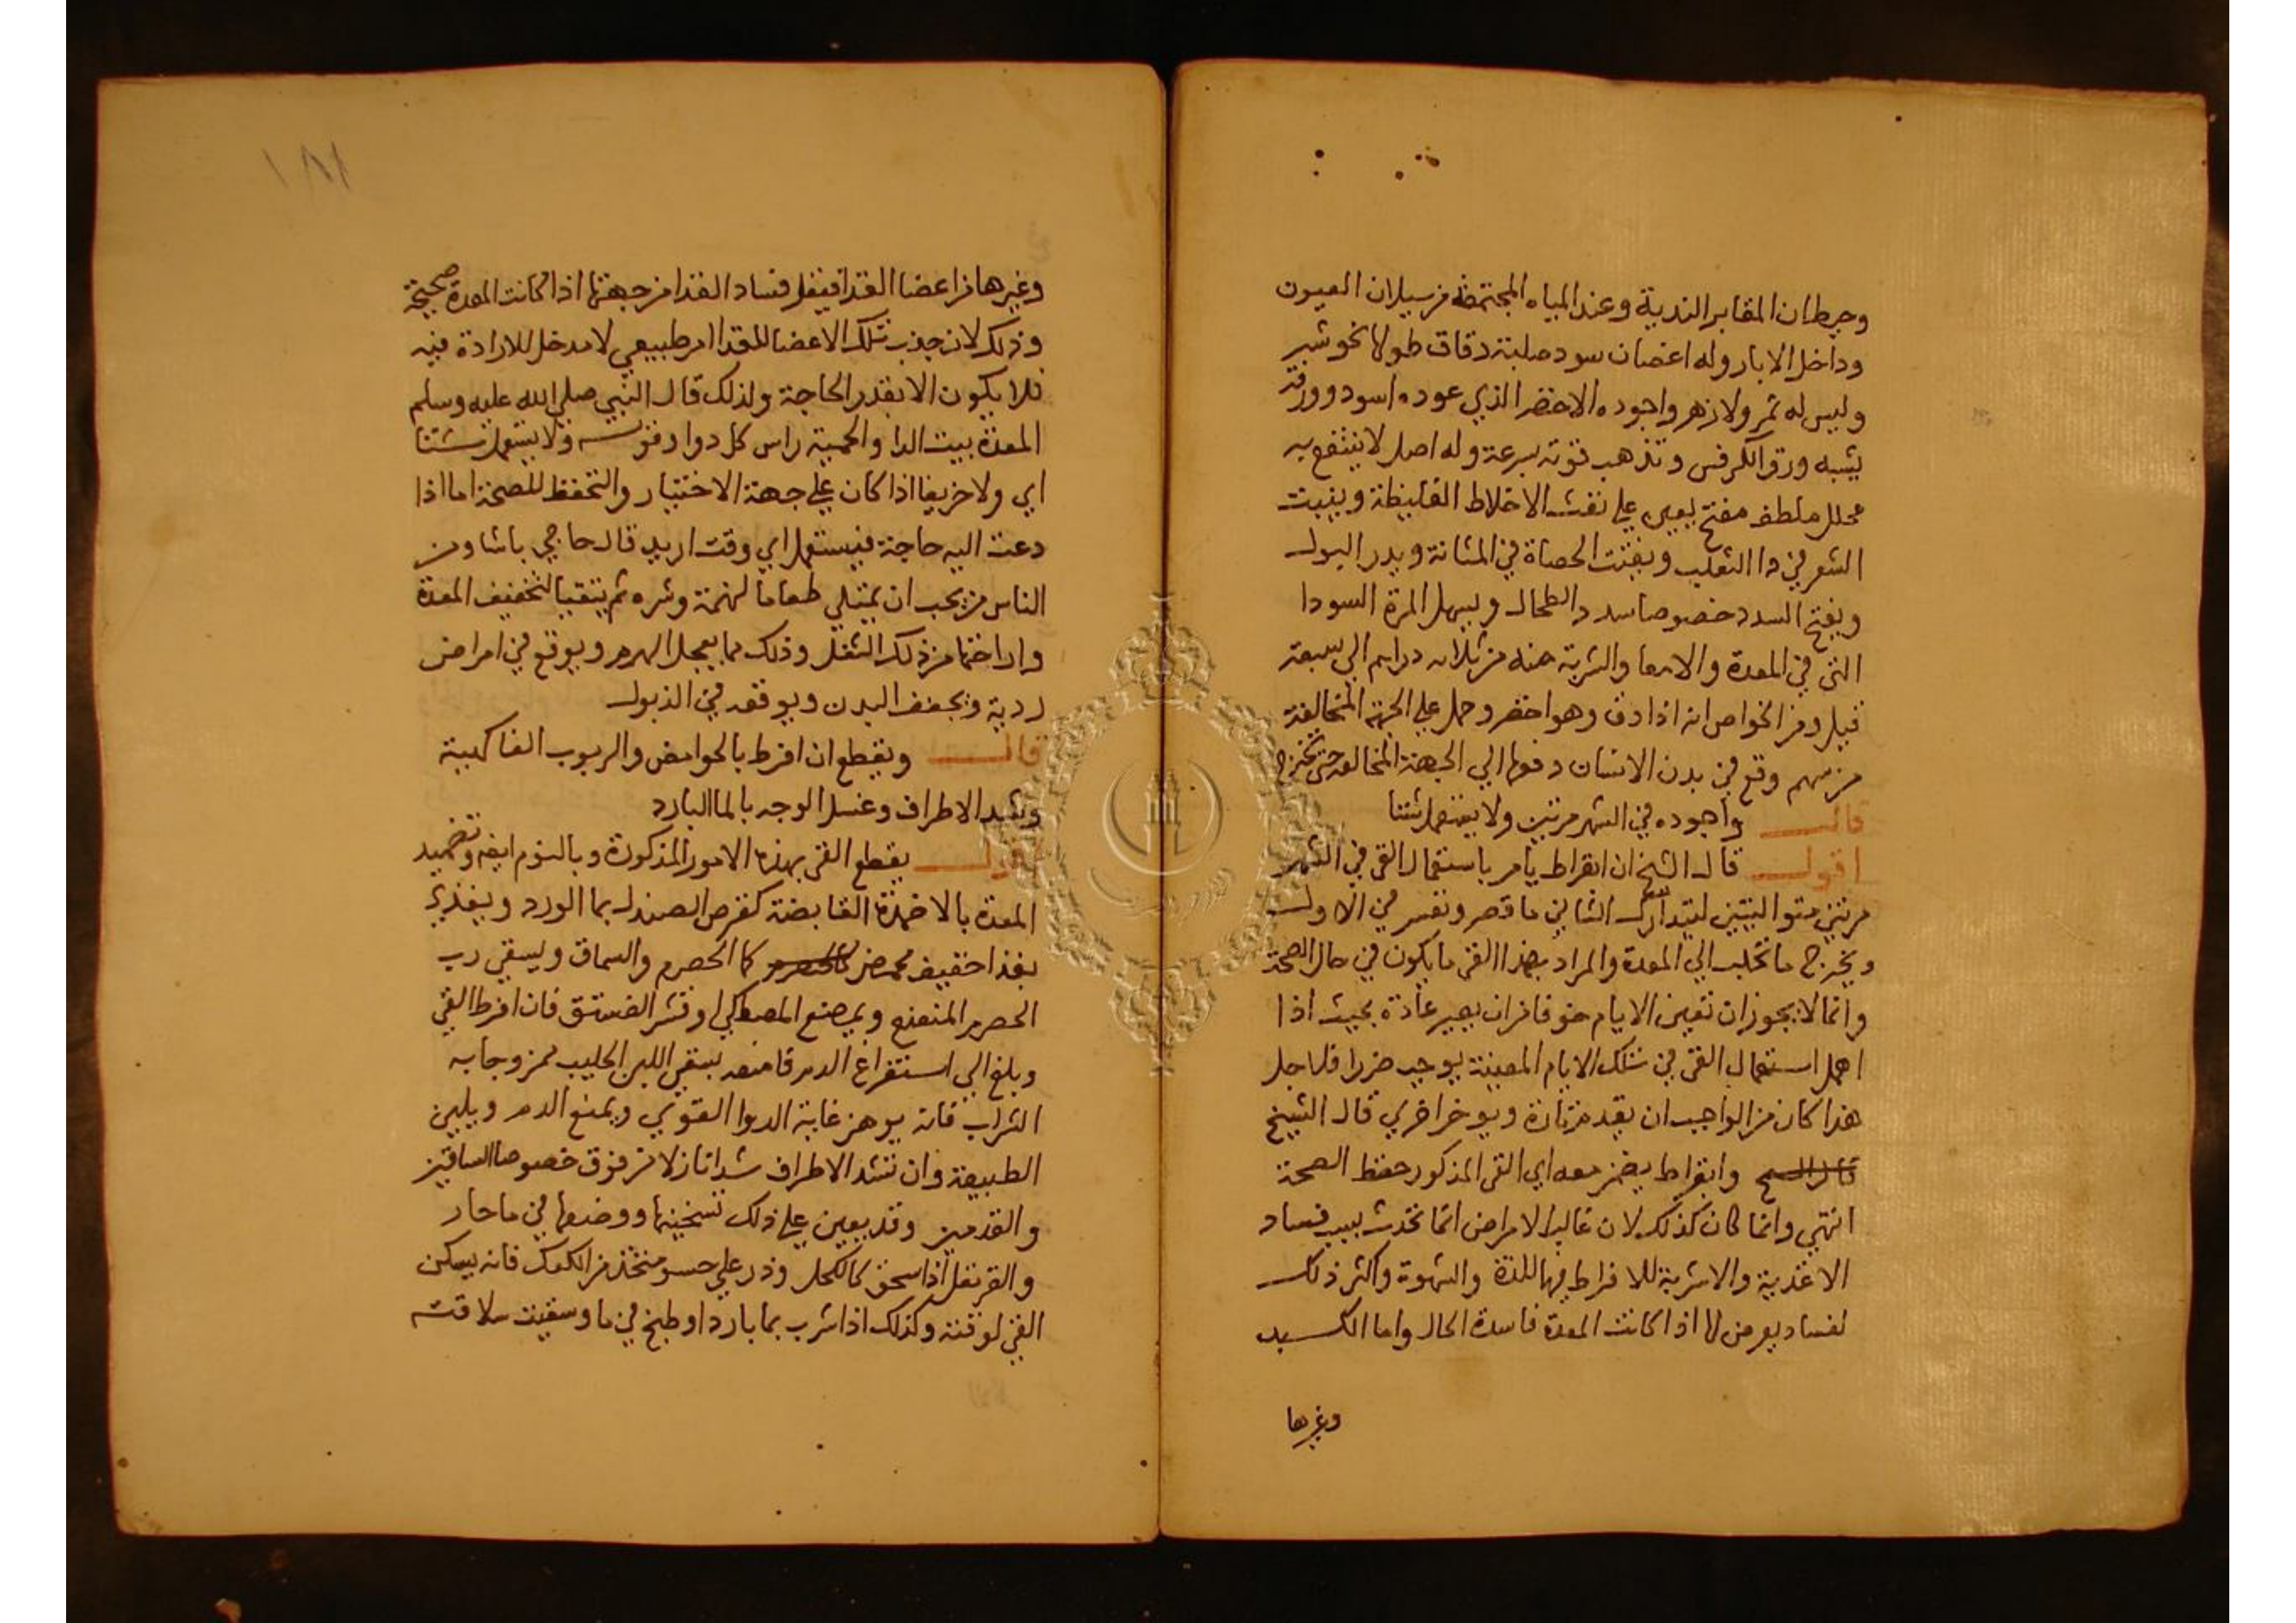 وحيطان المقابر الندية وعند المياه المجتمعة من سيلان العيون
وداخل الابار وله اغصان سود صلبة دقاق طولها نحو شبر
وليس له ثمر ولا زهر واجوده الاخضر الذي عوده اسود وورقه
يشبه ورق الكرفس وتذهب قوته بسرعة وله اصل لا ينتفع به
محلل ملطف مفتح يعين علي نفث الاخلاط الغليظة وينبت
الشعر في دا الثعلب ويفتت الحصاة في المثانة ويدر البول
ويفتح السدد خصوصا سدد الطحال ويسهل المرة السودا
التي في المعدة والامعا والشربة منه من ثلاثه دراهم الي سبعة
قيل ومن الخواص انه اذا دق وهو اخضر وحمل علي الجهة المخالفة
من سهم وقع في بدن الانسان دفعها الي الجهة المخالفه حتي تخرج
قال واجوده في الشهر مرتين ولا يستعمل شتا
اقول قال الشيخ ان ابقراط يامر باستعمال القي في الشهر
مرتين متواليتين ليتدارك الثاني ما قصر وتعسر في الاول
ويخرج ما تحلب الي المعدة والمراد بهذا القي ما يكون في حال الصحة
وانما لا يجوز ان تعين الايام خوفا من ان يصير عادة بحيث اذا
اهمل استعمال القي في تلك الايام المعينة يوجب ضررا فلاجل
هذا كان من الواجب ان يقدم تارة ويوخر اخري قال الشيخ
وابقراط يضمن معه اي القي المذكور حفظ الصحة
انتهي وانما كان كذلك لان غالب الامراض انما تحدث بسبب فساد
الاغذية والاشربة للافراط فيها للذة والشهوة واكثر ذلك
لفساد يعرض لها اذا كانت المعدة فاسدة الحال واما الكبد
وغيرها
١٨١
وغيرها من اعضا الغذا فيقل فساد الغذا من جهتها اذا كانت المعدة صحيحة
وذلك لان جذب تلك الاعضا للغذا امر طبيعي لا مدخل للارادة فيه
فلا يكون الا بقدر الحاجة ولذلك قال النبي صلي الله عليه وسلم
المعدة بيت الدا والحمية راس كل دوا وقوله ولا يستعمل شتا
اي ولا خريفا اذا كان علي جهة الاختيار والتحفظ للصحة اما اذا
دعت اليه حاجة فيستعمل اي وقت اريد قال حاجي باشا ومن
الناس من يحب ان يمتلي طعاما لنهمة وشره ثم يتقيا لتخفيف المعدة
واراحتها من ذلك الثقل وذلك مما يعجل الهرم ويوقع في امراض
ردية ويجفف البدن ويوقعه في الذبول
قال ويقطع ان افرط بالحوامض والربوب الفاكهية
وشد الاطراف وغسل الوجه بالما البارد
اقول يقطع القي بهذه الامور المذكورة وبالنوم ايضا وتضميد
المعدة بالاضمدة القابضة كقرص الصندل بما الورد ويغذي
بغذا خفيف محمض كما الحصرم والسماق ويسقي رب
الحصرم المنعنع ويمضغ المصطكي او قشر الفستق فان افرط القي
وبلغ الي استفراغ الدم فامنعه بسقي اللبن الحليب ممزوجا به
الشراب فانه يوهن غاية الدوا القوي ويمنع الدم ويلين
الطبيعة وان تشد الاطراف شدا نازلا من فوق خصوصا الساقين
والقدمين وقد يعين علي ذلك تسخينها ووضعها في ما حار
والقرنفل اذا سحق كالكحل وذر علي حسو متخذ من الكعك فانه يسكن
القي لوقته وكذلك اذا شرب بما بارد او طبخ في ما وسقيت سلاقته